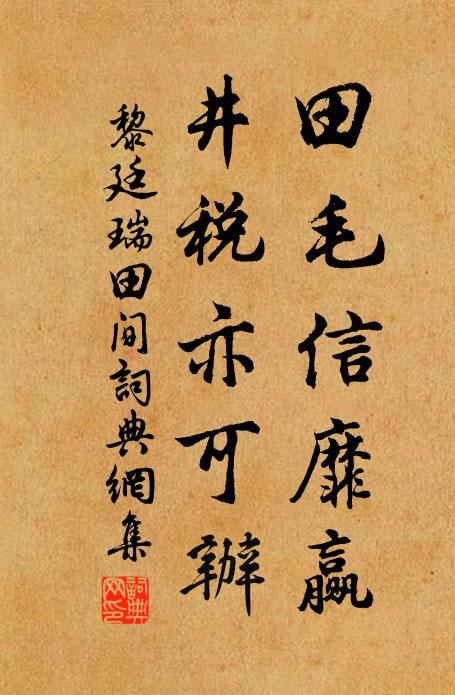 田毛信靡贏
井税亦可辦
黎廷瑞田間詞典網集
詞典網印